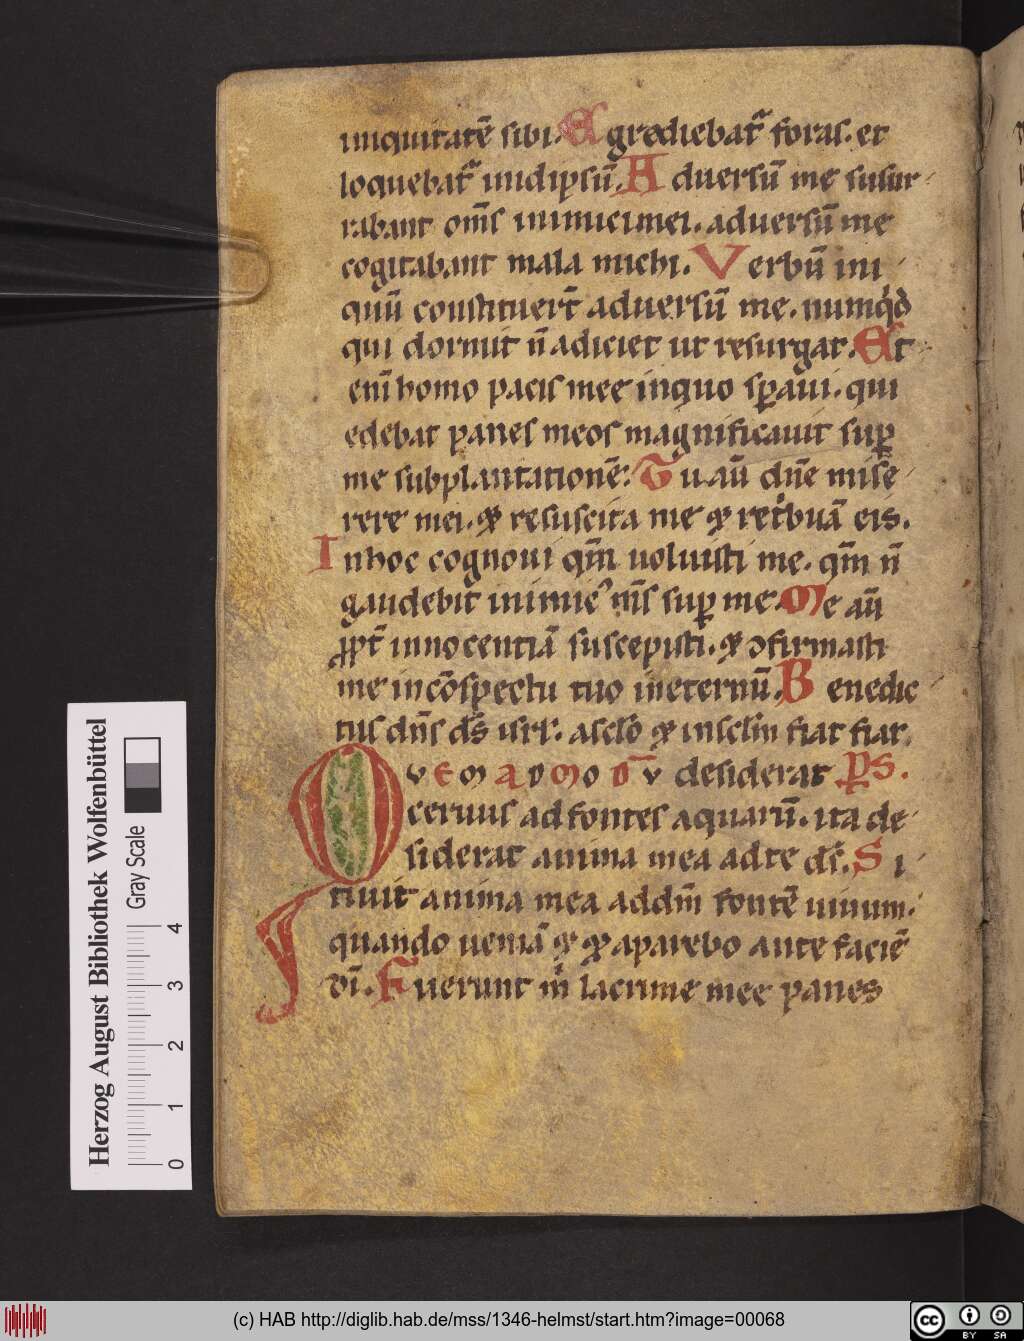 iniquitatē sibi. Egrediebat᷑ foras. et
loquebat᷑ inidipsū. Aduersū me susur
rabant om̄s inimici mei. aduersū me
cogitabant mala michi. Verbū ini
quū constituer̄t aduersū me. numqͥd
qui dormit n̄ adiciet ut resurgat. Et
enī homo pacis mee inquo sꝑaui. qui
edebat panes meos magnificauit suꝑ
me subplantationē. Tu aū dn̄e mise
rere mei. ⁊ resuscita me ⁊ retͥbuā eis.
In hoc cognoui qm̄ uoluisti me. qm̄ n̄
gaudebit inimicꝰ m̄s suꝑ me. Me aū
ꝓpt̄ innocentiā suscepisti. ⁊ ↄfirmasti
me incōspectu tuo ineternū. Benedic
tus dn̄s ds̄ isrl̄. asclo̅ ⁊ insclm̄ fiat fiat.
QVEMADMODV̄ desiderat Ps.
ceruus ad fontes aquarū. ita de
siderat anima mea ad te ds̄. Si
tiuit anima mea addm̄ fontē uiuum.
quando ueniā ⁊ ⁊ aparebo ante faciē
dī. Fuerunt mͥ lacrime mee panes
Herzog August Bibliothek Wolfenbüttel
Gray Scale
0 1 2 3 4
(c) HAB http://diglib.hab.de/mss/1346-helmst/start.htm?image=00068
cc BY SA